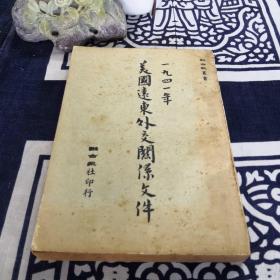 一九四一年
美國遠東外交關係文件
社印行